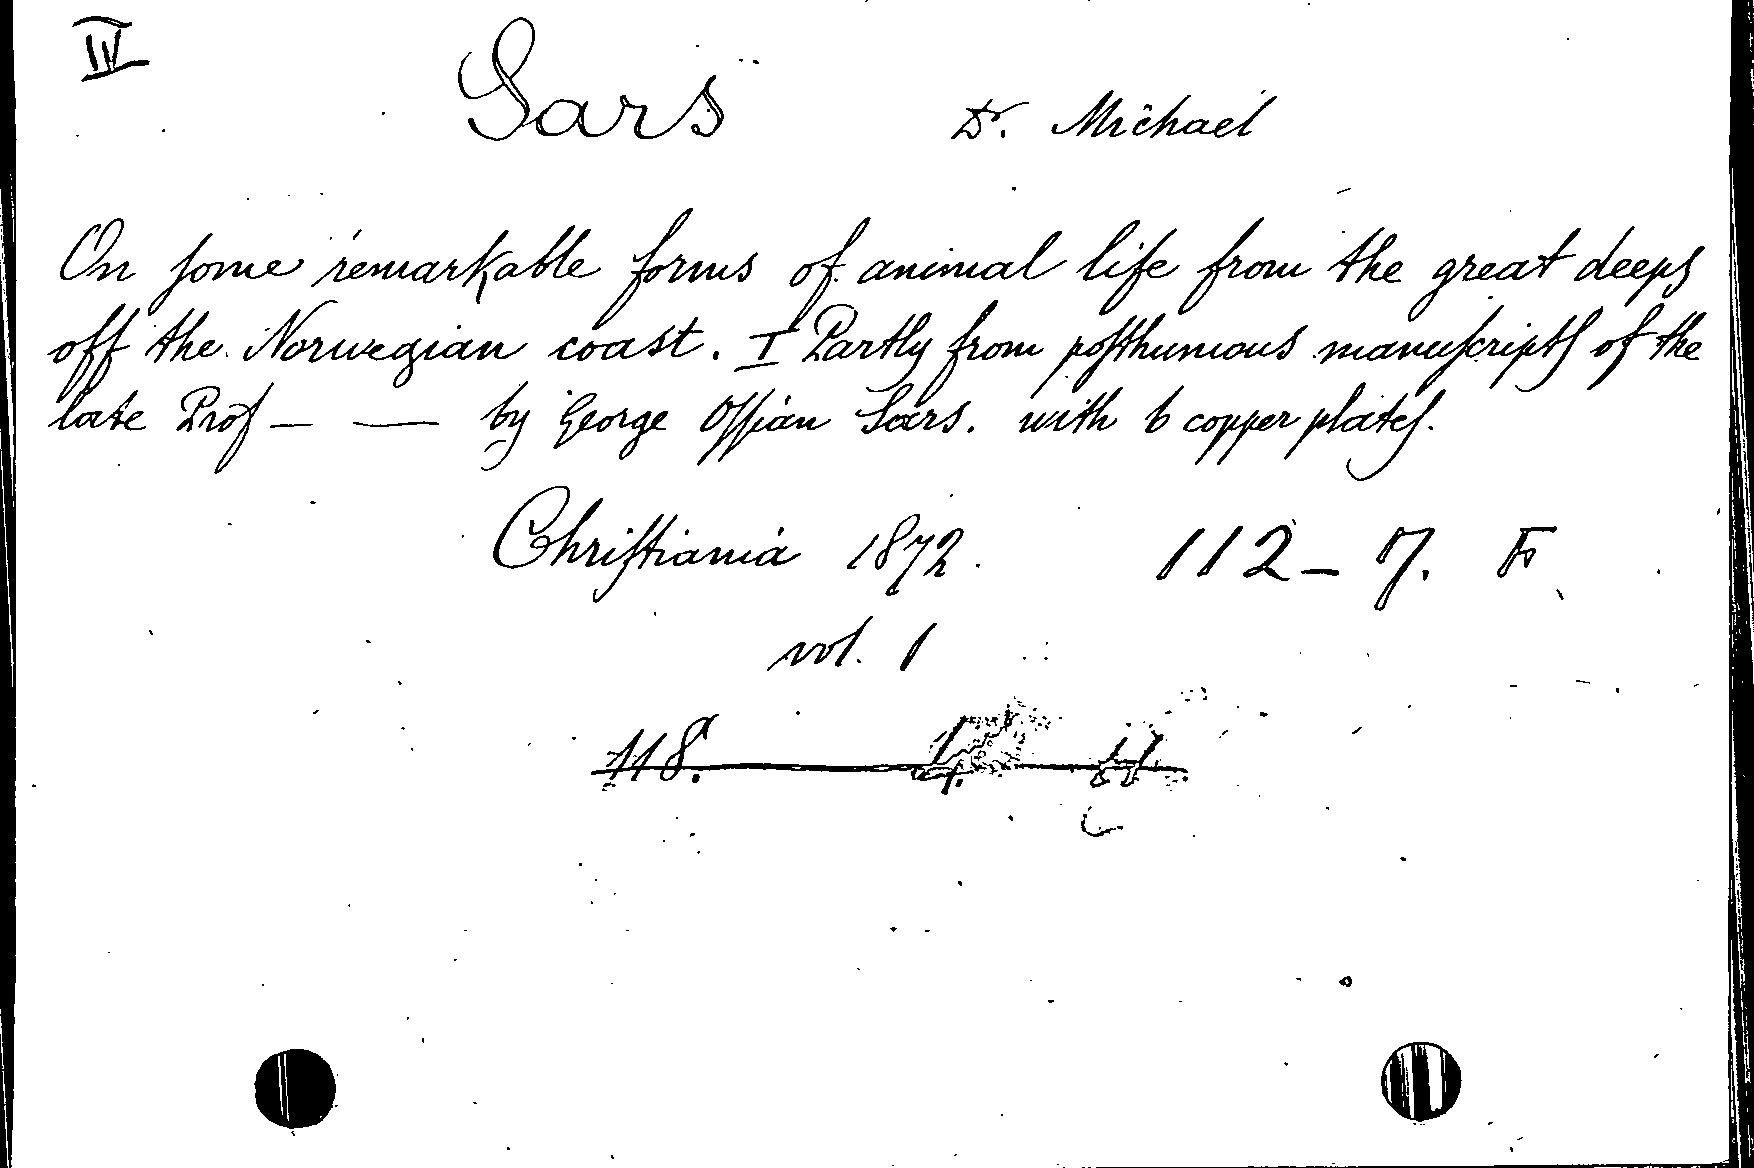 IV
Sars Dr. Michael
On some remarkable forms of animal life from the great deeps
off the Norwegian coast. I Partly from posthumous manuscripts of the
late Prof — — by George Ossian Sars. with 6 copper plates.
Christiania 1872. 112-7. F
vol. 1
118.